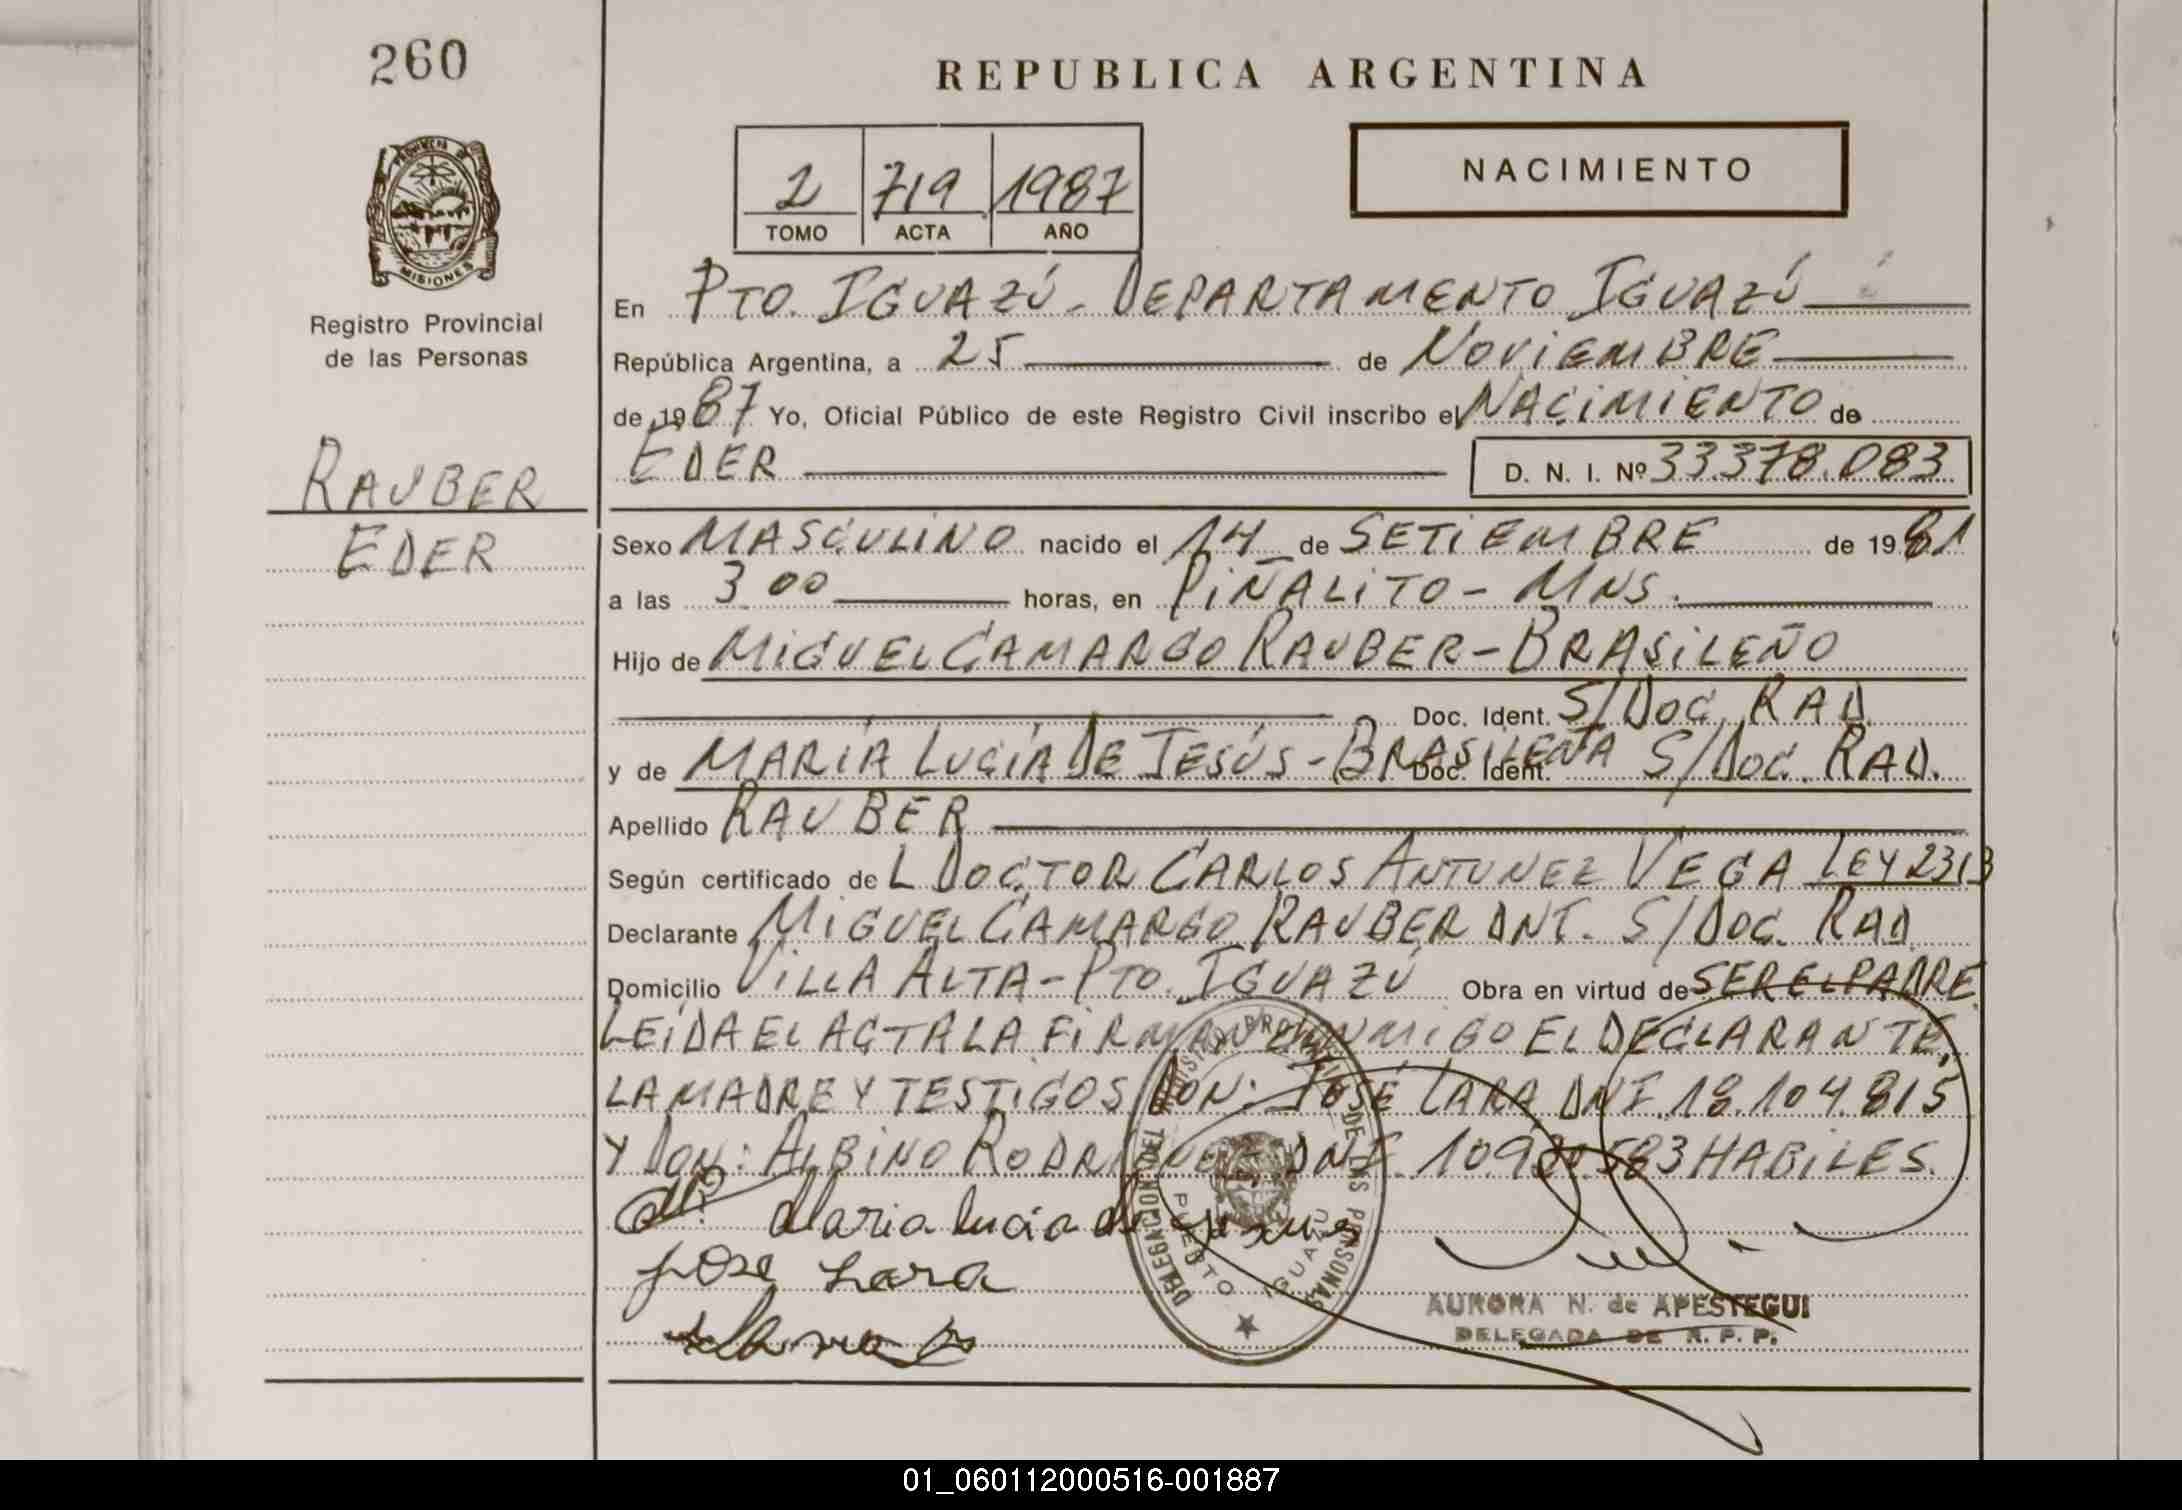 260
REPUBLICA ARGENTINA
2 719 1987
TOMO ACTA AÑO
NACIMIENTO
PROVINCIA DE
MISIONES
Registro Provincial
de las Personas
RAUBER
EDER
En PTO. IGUAZÚ - DEPARTAMENTO IGUAZÚ
República Argentina, a 25 de NOVIEMBRE
de 1987 Yo, Oficial Público de este Registro Civil inscribo el NACIMIENTO de
EDER D. N. I. Nº 33.378.083
Sexo MASCULINO nacido el 14 de SETIEMBRE de 1981
a las 3 00 horas, en PIÑALITO - MNS.
Hijo de MIGUEL CAMARGO RAUBER - BRASILEÑO
Doc. Ident. S/DOC. RAD.
y de MARÍA LUCÍA DE JESÚS - BRASILEÑA Doc. Ident. S/DOC. RAD.
Apellido RAUBER
Según certificado de L DOCTOR CARLOS ANTUNEZ VEGA LEY 2313
Declarante MIGUEL CAMARGO RAUBER DNI. S/DOC. RAD.
Domicilio VILLA ALTA - PTO. IGUAZÚ Obra en virtud de SER EL PADRE.
LEÍDA EL ACTA LA FIRMAN CONMIGO EL DECLARANTE,
LA MADRE Y TESTIGOS DON: JOSÉ LARA DNI. 18.104.815
Y DON: ALBINO RODRIGUEZ DNI. HABILES.
Maria lucia de jesus
jose Lara
DELEGACION DEL REGISTRO PROVINCIAL DE LAS PERSONAS
PUERTO IGUAZU
AURORA N. de APESTEGUI
DELEGADA DE R. P. P.
01_060112000516-001887